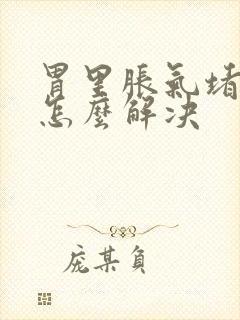 胃里脹氣堵
怎麼解决
庞某負